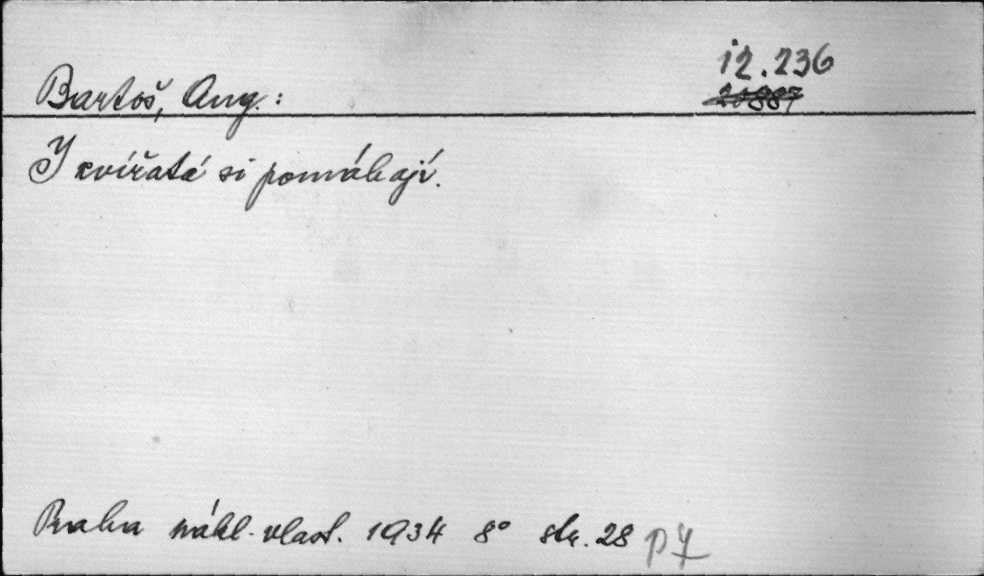 12.236
Bartoš, Aug.:
20887
I zvířatá si pomáhají.
Praha nákl. vlast. 1934 8° str. 28